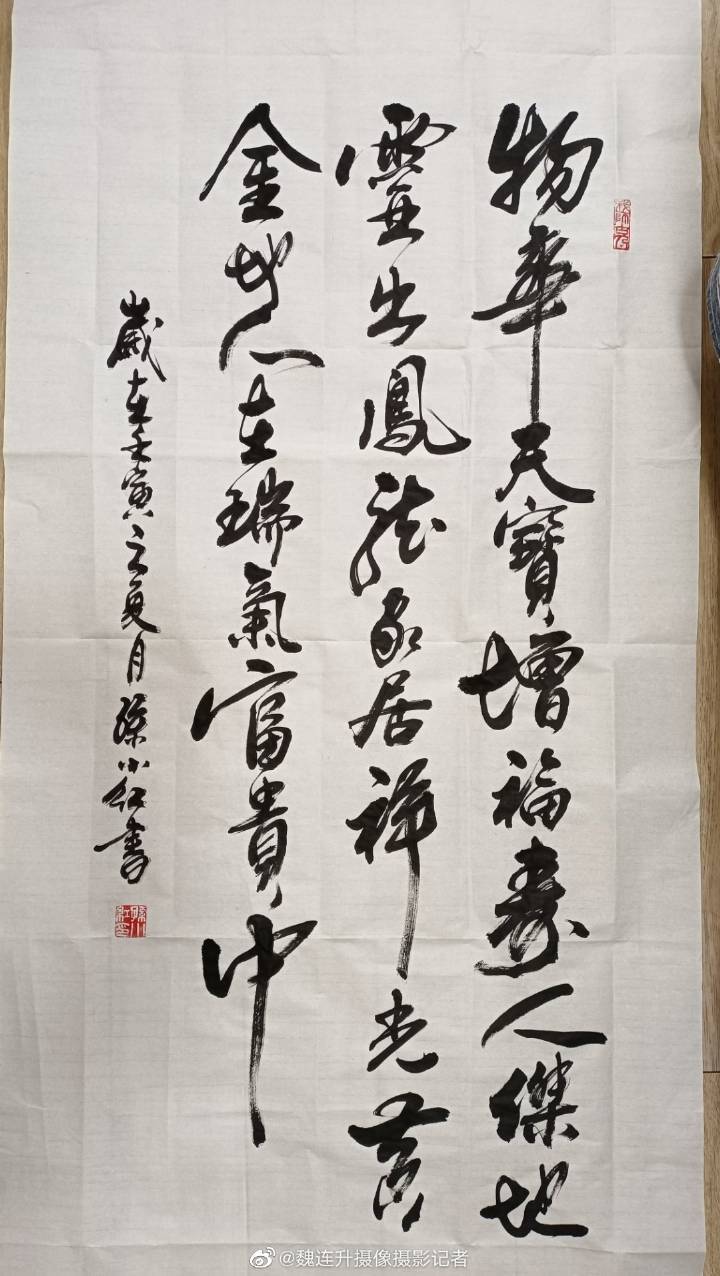 物華天寶增福壽人傑地
靈出鳳龍家居祥光黃
金地人在瑞氣富貴中
歲在壬寅之夏月孫小紅書
@魏连升摄像摄影记者